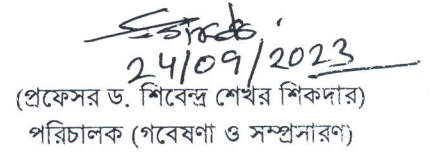 24/09/2023
(প্রফেসর ড. শিবেন্দ্র শেখর শিকদার)
পরিচালক (গবেষণা ও সম্প্রসারণ)